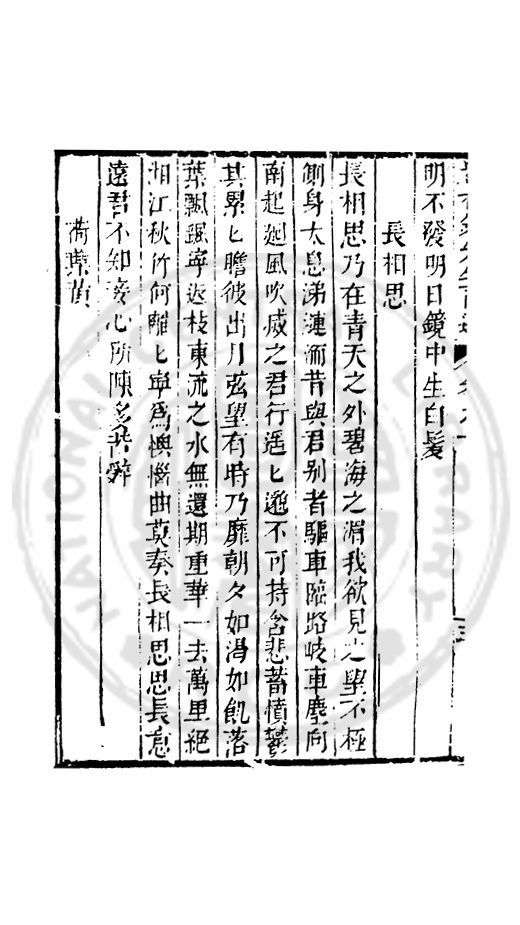 明不發明日鏡中生白髪
長相思
長相思乃在青天之外碧海之湄我欲見之望不極
側身太息涕漣洏昔與君别者驅車臨路岐車塵向
南起廻風吹咸之君行遥匕遡不可持含悲蓄憤鬱
其累匕瞻彼出月弦望有時乃靡朝夕如渴如飢落
葉飄飄寧返枝東流之水無還期重華一去萬里絕
湘江秋竹何離匕寧爲懊惱曲莫奏長相思思長意
遠君不知妾心所陳多苦辭